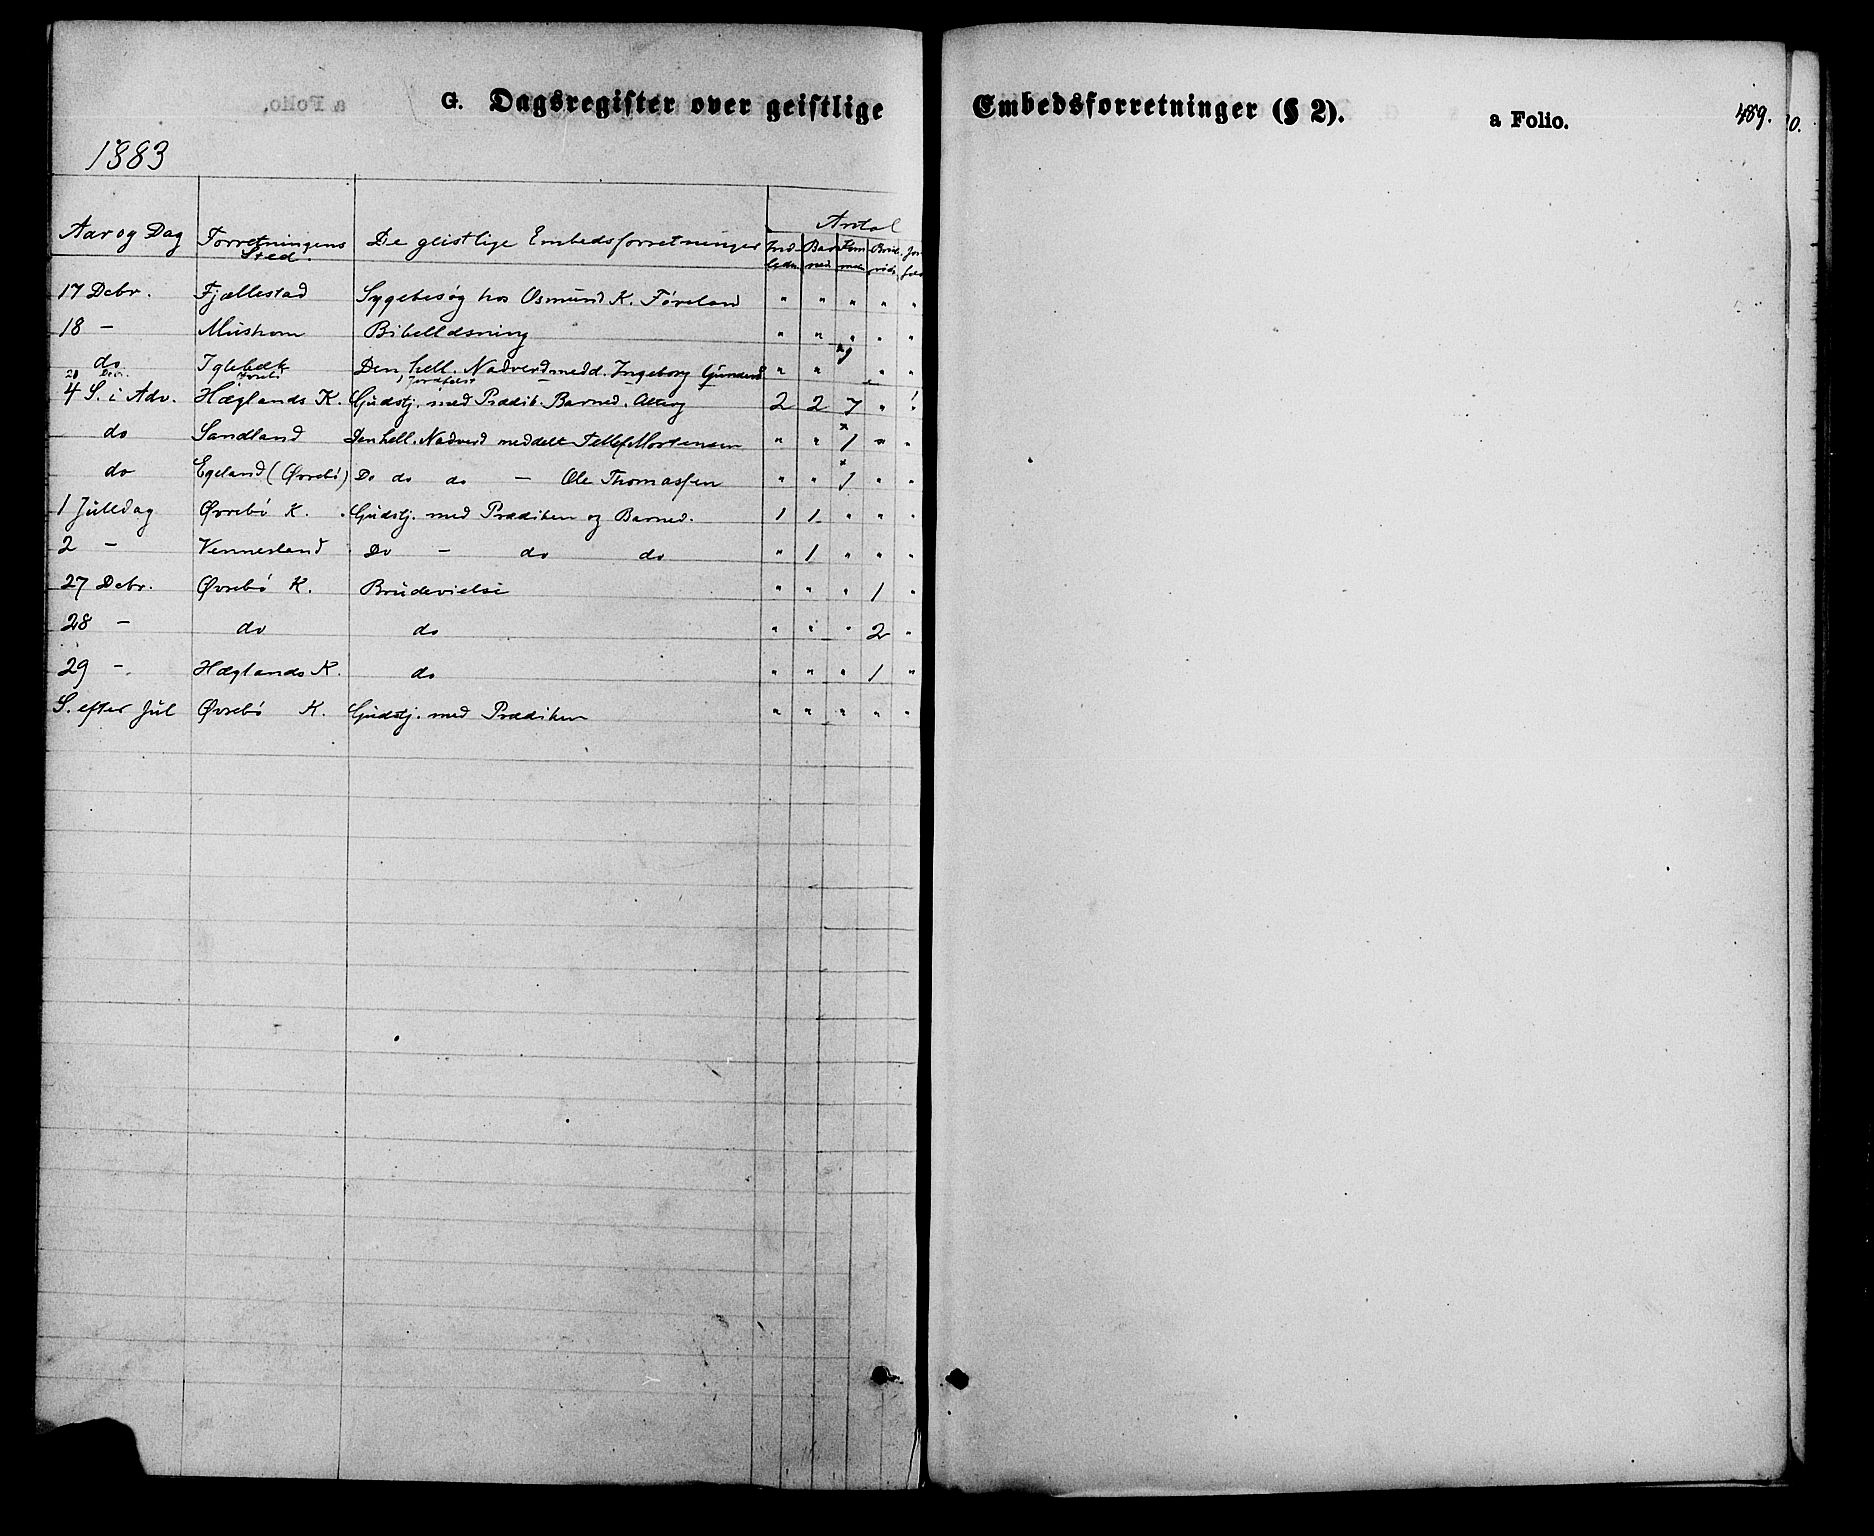 G. Dagsregister over geistlige Embedsforretninger (§ 2). a Folio. 489.
1883
Aar og Dag Forretningens Sted. De geistlige Embedsforretninger Antal
17 Decbr. Fjællestad Sygebesøg hos Osmund K. Føreland " " " " "
18 - Mushom Bibellæsning " " " " "
do Iglebæk Den hell. Nadverd medd. Ingeborg Gundersd " " 1 " "
20 Jordfæst
4 S. i Adv. Hæglands K. Gudstj. med Prædik. Barned. Alterg 2 2 7 " 1
do Sandland Den hell. Nadverd meddelt Tellef Mortensen " " 1 " "
do Egeland (Øvrebö) Do do do - Ole Thomassen " " 1 " "
1 Juledag Øvrebö K. Gudstj. med Prædiken og Barned. 1 1 " " "
2 - Vennesland Do - do do " 1 " " "
27 Decbr. Øvrebö K. Brudevielse " " " 1 "
28 - do do " " " 2 "
29 -. Hæglands K. do " " " 1 "
S. efter Jul Øvrebö K. Gudstj. med Prædiken " " " " "